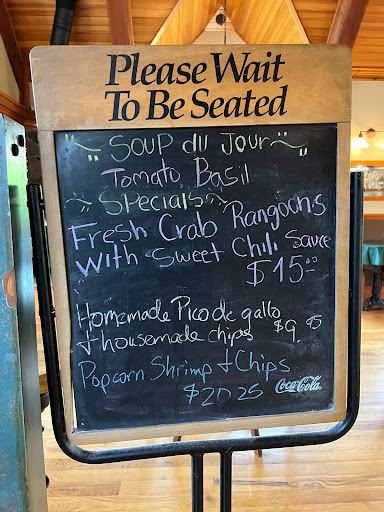 Please Wait
To Be Seated
Soup du Jour
Tomato Basil
Specials
Fresh Crab Rangoons
with Sweet Chili Sauce
$15.00
Homemade Pico de gallo
+ housemade chips $9.95
Popcorn Shrimp + Chips
$20.25
Coca-Cola